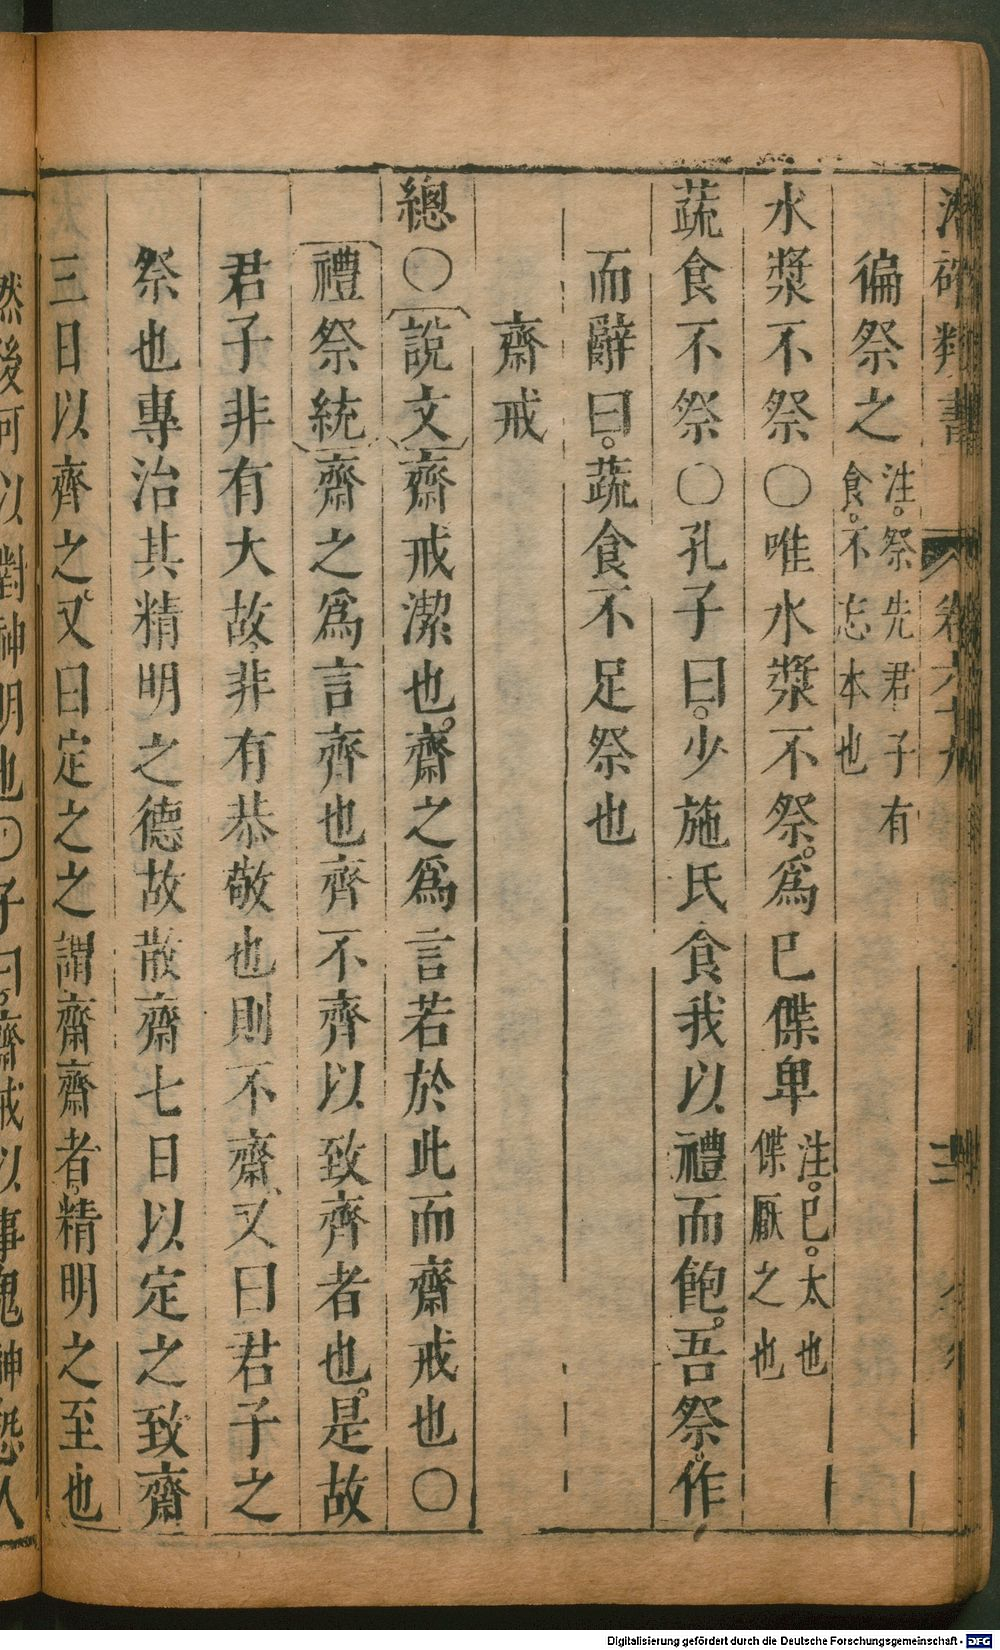 類書 卷六十九
徧祭之注。祭先君子有食。不忘本也
水漿不祭〇唯水漿不祭。爲巳傑卑注。巳。太也傑厭之也
蔬食不祭〇孔子曰。少施氏食我以禮而飽。吾祭。作
而辭曰。蔬食不足祭也
齋戒
總〇說文齋戒潔也。齋之爲言若於此而齋戒也〇
禮祭統齋之爲言齊也齊不齊以致齊者也。是故
君子非有大故、非有恭敬也則不齋、又曰君子之
祭也專治其精明之德故散齋七日以定之致齋
三日以齊之、又曰定之之謂齋齋者、精明之至也
然後可以對神明也〇子曰。齋戒以事鬼神恐人
Digitalisierung gefördert durch die Deutsche Forschungsgemeinschaft - DFG